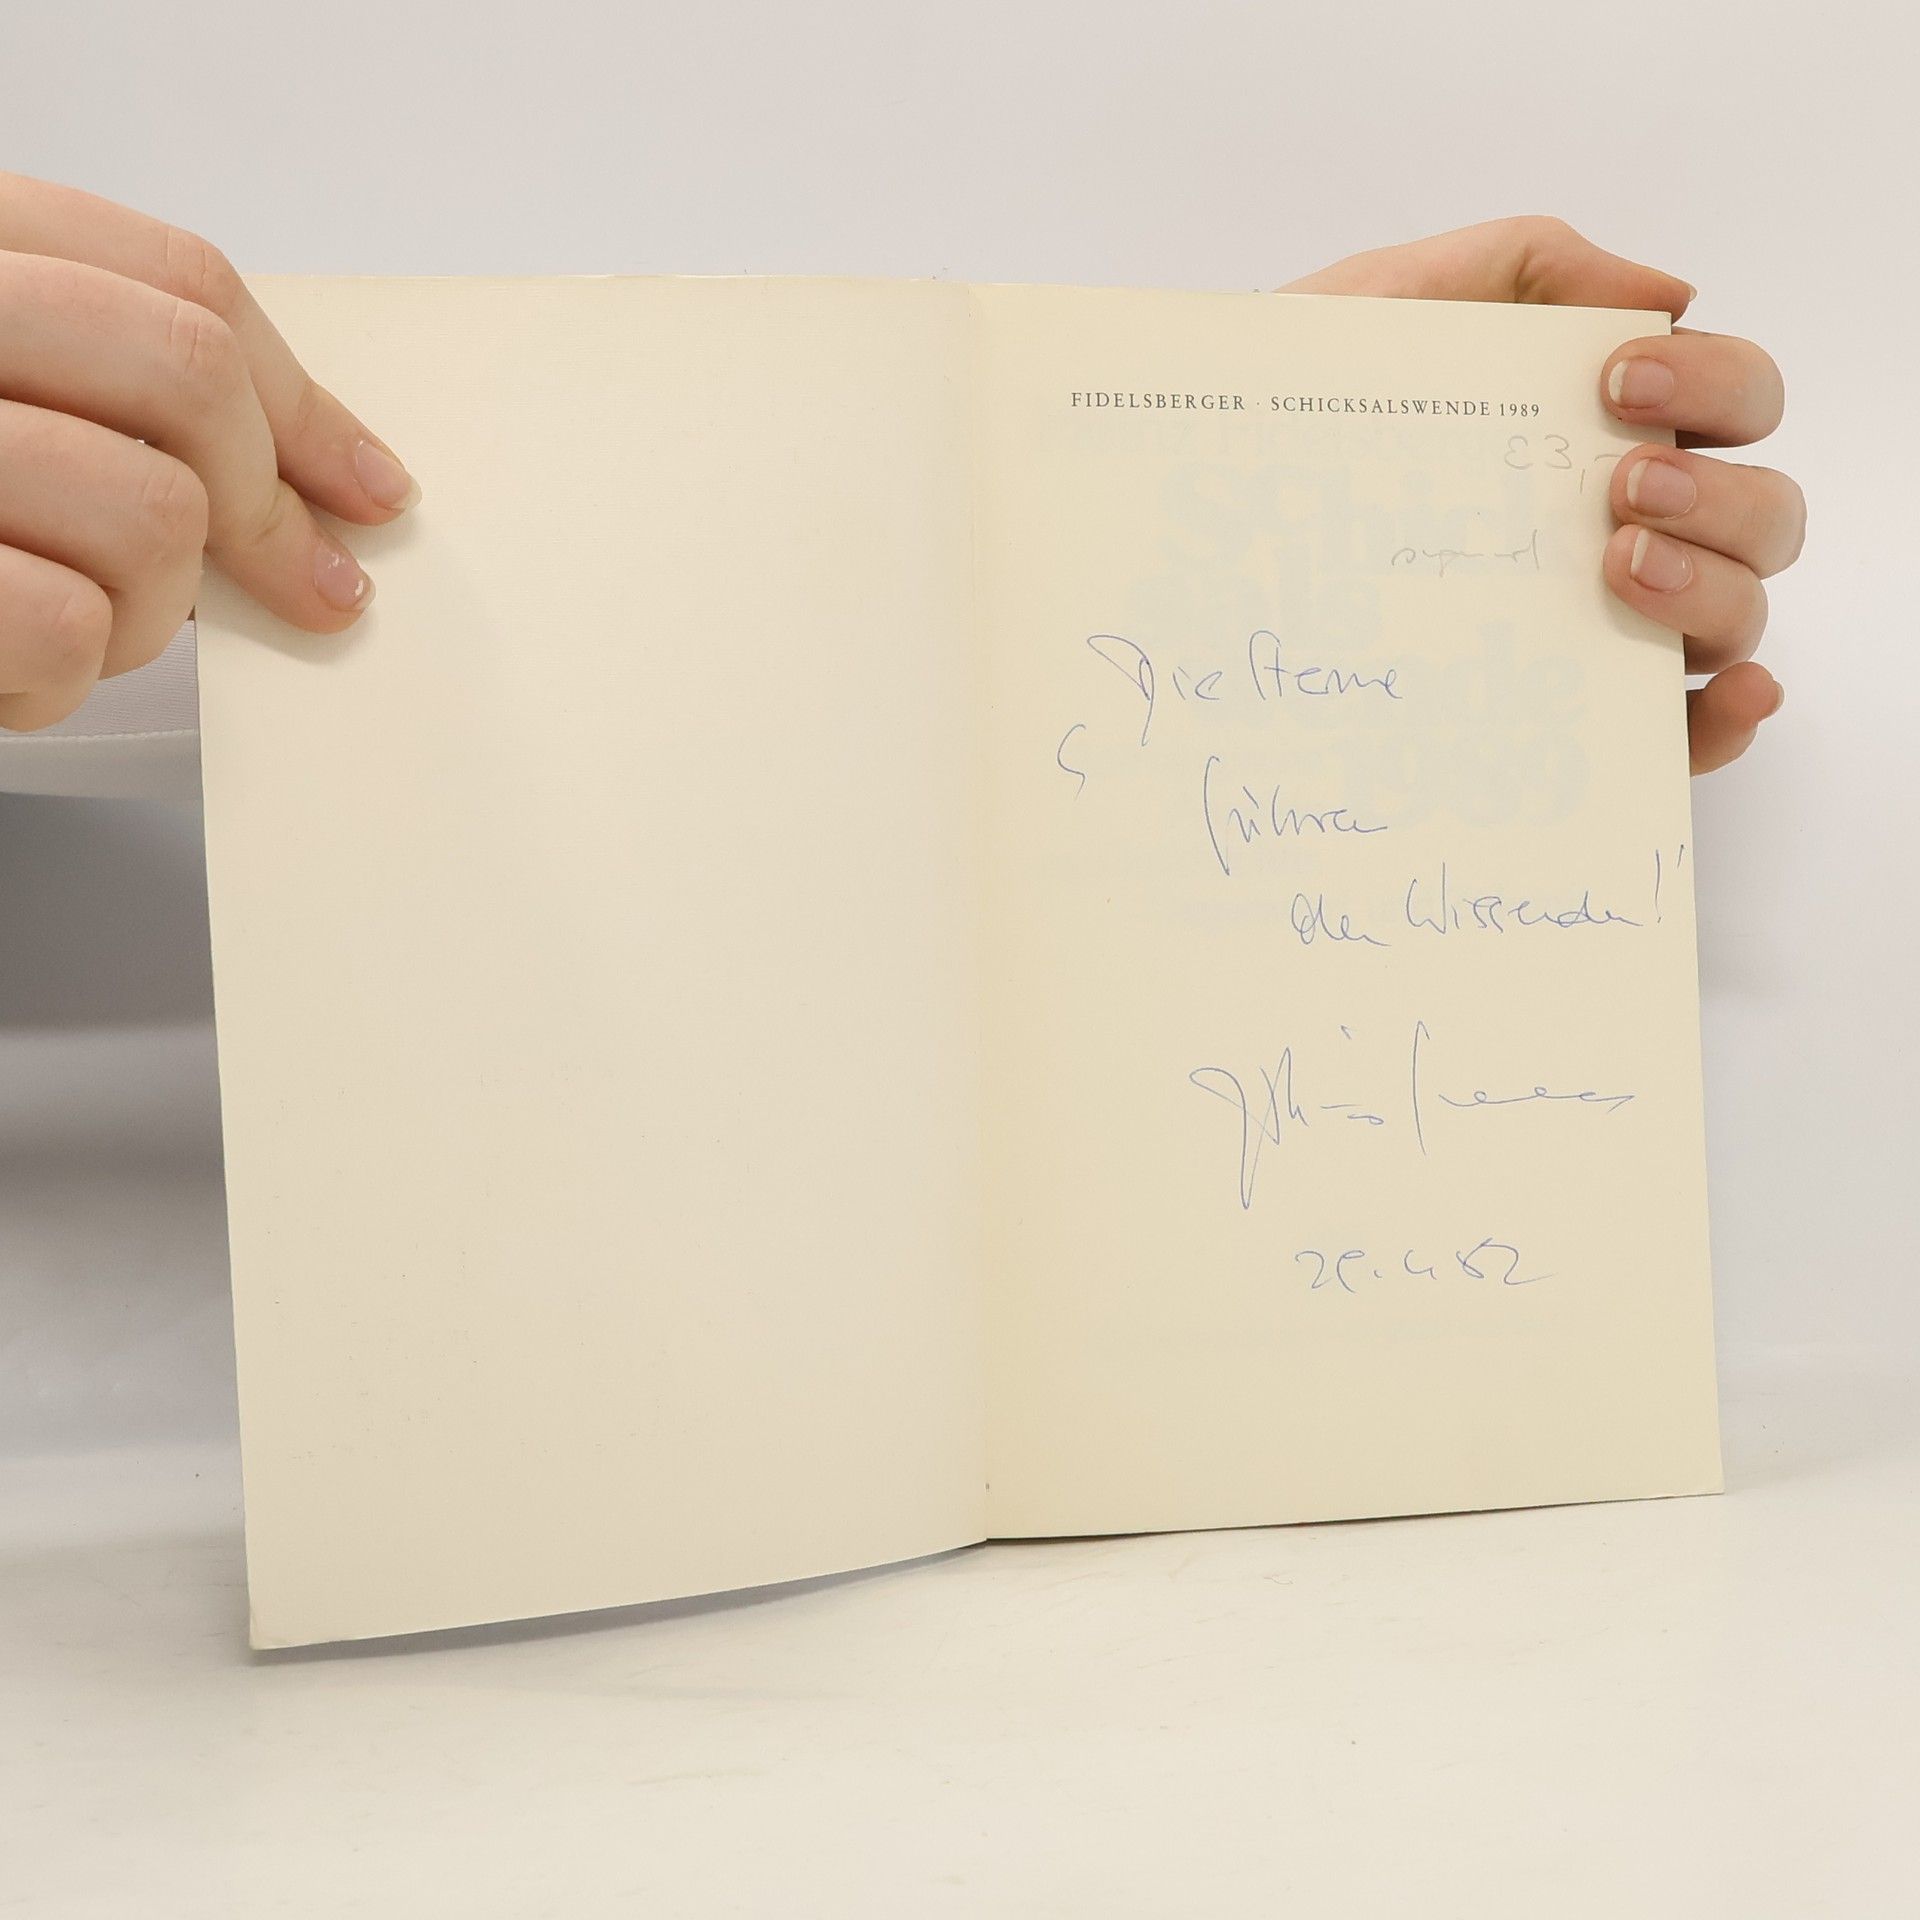 FIDELSBERGER · SCHICKSALSWENDE 1989
€3,-
signiert
Die Sterne
führen
den Wissenden!"
29.4.82